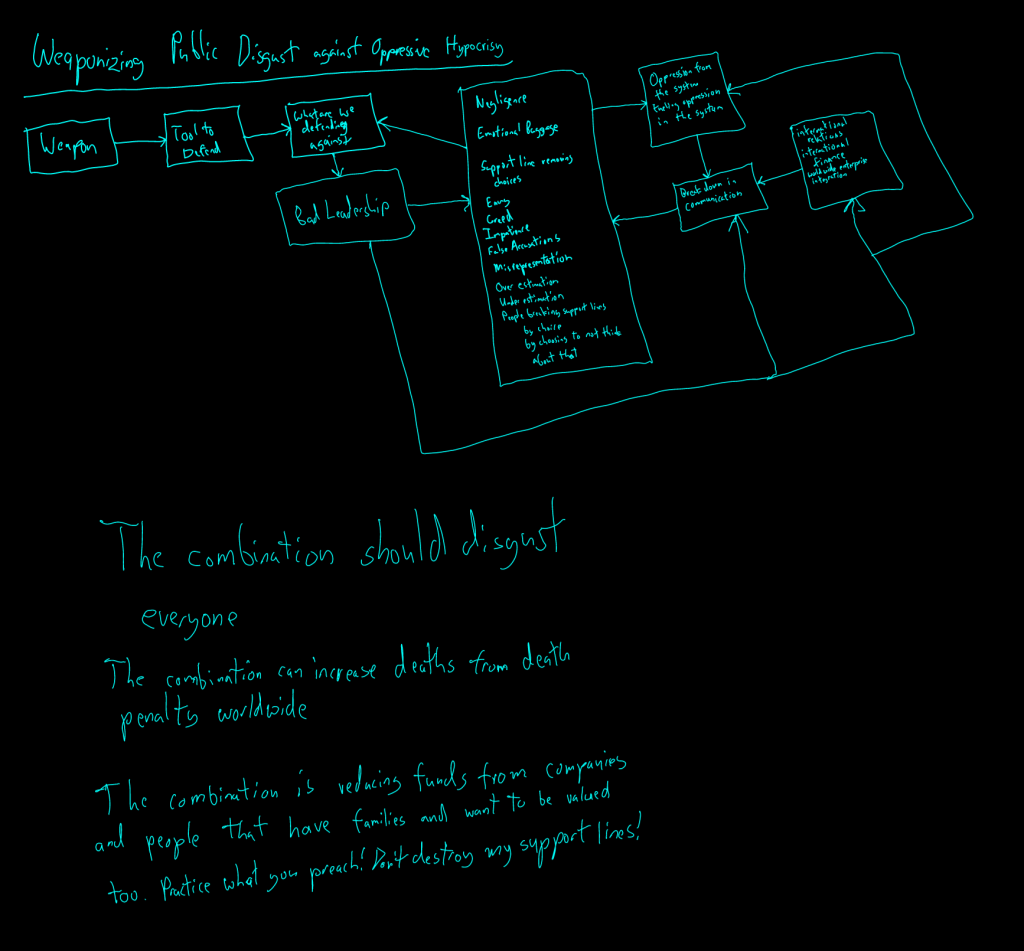 Weaponizing Public Disgust against Oppressive Hypocrisy
Weapon
Tool to
Defend
What are we
defending
against
Bad Leadership
Negligence
Emotional Baggage
Support line remaining
choices
Envy
Greed
Impatience
False Accusations
Misrepresentation
Over estimation
Under estimation
People breaking support lines
by choice
by choosing to not think
about that
Oppression from
the system
fueling oppression
in the system
Break down in
communication
international
relations
international
finance
worldwide enterprise
integration
The combination should disgust
everyone
The combination can increase deaths from death
penalty worldwide
The combination is reducing funds from companies
and people that have families and want to be valued
too. Practice what you preach! Don't destroy my support lines!